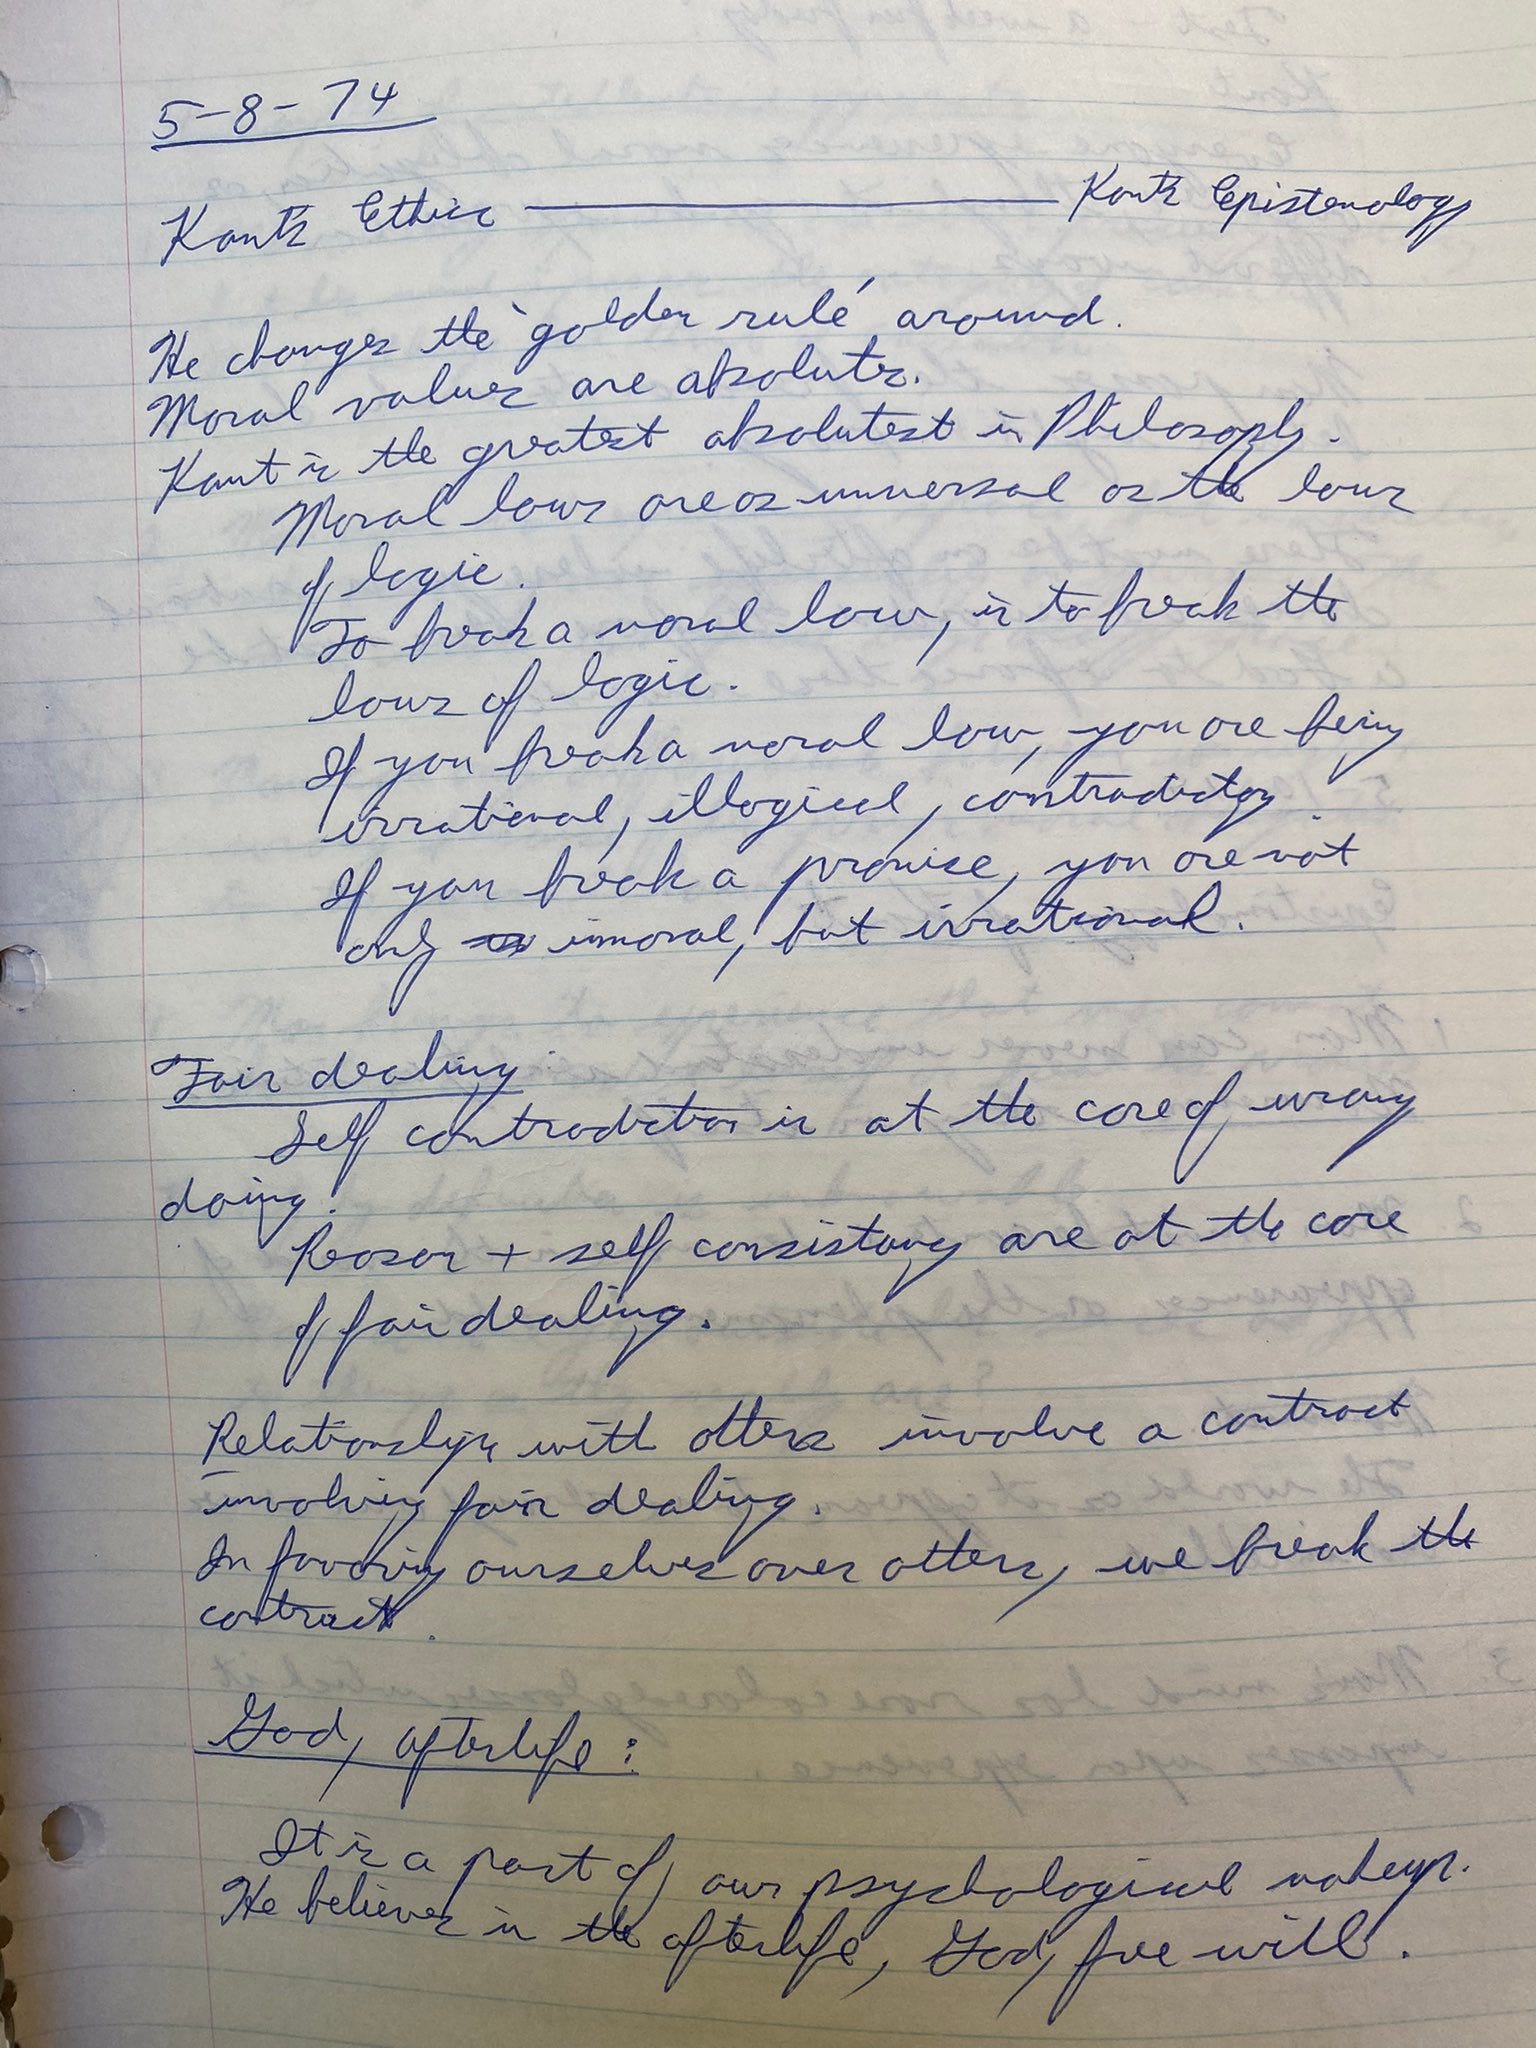 5-8-74
Kant's Ethics ——— Kant's Epistemology
He changes the "golden rule" around.
Moral values are absolutes.
Kant is the greatest absolutest in Philosophy.
Moral laws are as universal as the laws
of logic.
To break a moral law, is to break the
laws of logic.
If you break a moral law, you are being
irrational, illogical, contradictory.
If you break a promise, you are not
only immoral, but irrational.
Fair dealing:
Self contradiction is at the core of wrong
doing.
Reason + self consistancy are at the core
of fair dealing.
Relationships with others involve a contract
involving fair dealing.
In favoring ourselves over others, we break the
contract.
God, afterlife:
It is a part of our psychological makeup.
He believes in the afterlife, God, free will.